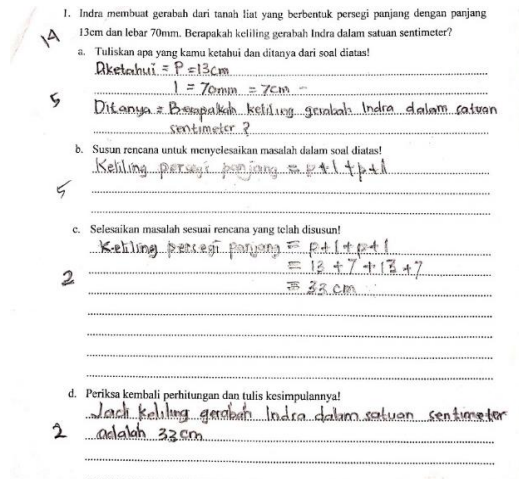 1. Indra membuat gerabah dari tanah liat yang berbentuk persegi panjang dengan panjang
14
13cm dan lebar 70mm. Berapakah keliling gerabah Indra dalam satuan sentimeter?
a. Tuliskan apa yang kamu ketahui dan ditanya dari soal diatas!
Diketahui = P = 13cm
l = 70mm = 7cm
5
Ditanya = Berapakah keliling gerabah Indra dalam satuan
sentimeter ?
b. Susun rencana untuk menyelesaikan masalah dalam soal diatas!
Keliling persegi panjang = p+l+p+l
5
c. Selesaikan masalah sesuai rencana yang telah disusun!
Keliling persegi panjang = p+l+p+l
= 13 +7 +13 +7
2
= 33 cm
d. Periksa kembali perhitungan dan tulis kesimpulannya!
Jadi keliling gerabah Indra dalam satuan sentimeter
2
adalah 33 cm